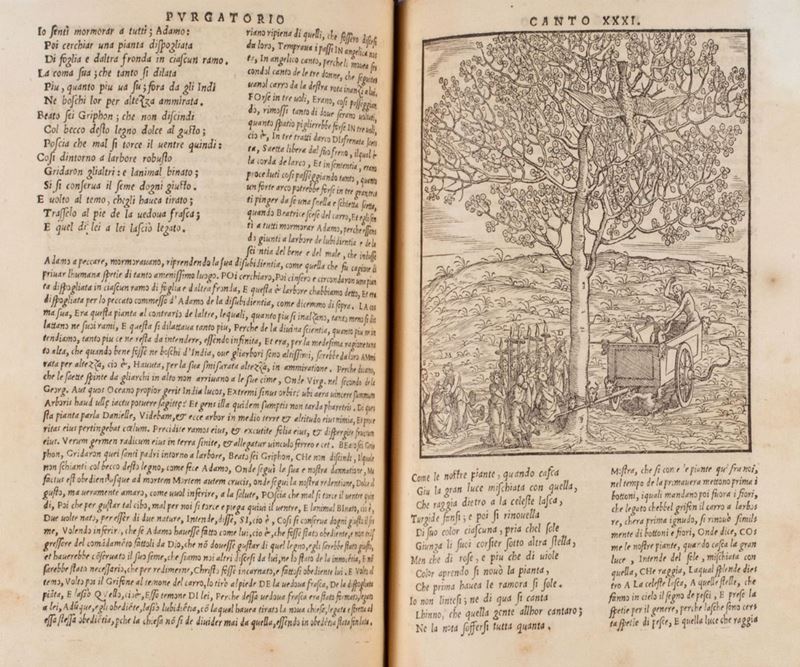 PVRGATORIO
Io senti mormorar a tutti; Adamo:
Poi cerchiar una pianta dispogliata
Di foglia e d'altra fronda in ciascun ramo.
La coma sua; che tanto si dilata
Piu, quanto piu ua su; fora da gli Indi
Ne boschi lor per altezza ammirata.
Beato sei Griphon; che non discindi
Col becco desto legno dolce al gusto;
Poscia che mal si torce il uentre quindi:
Cosi dintorno a larbore robusto
Gridaron glialtri: e lanimal binato;
Si si conserua il seme dogni giusto.
E uolto al temo, chegli hauea tirato;
Trasselo al pie de la uedoua frasca;
E quel di lei a lei lasciò legato.
riano ripiena di quelli, che
da loro, Temprana i passi IN angelica no
te, In angelico canto, perche
condo'l canto de le tre donne, che
uanol carro da la destra rota
FOrse in tre uoli, Erano, cosi passeggian
do, rimossi tanto di doue
quanto spatio piglierebbe forse IN tre uoli,
cio è, In tre tratti darco DIsfrenata saet
ta, Saetta libera dal suo freno, il qual è
la corda de larco, Et in sententia, erano
proceduti cosi passeggiando tanto, quanto
un forte arco potrebbe forse in tre
ti pinger da se una snella e schietta saetta,
quando Beatrice scese del carro, Et egli sen
ti a tutti mormorar Adamo, perche essen
do giunti a larbore de lubidientia e de la
scientia del bene e del male, che indusse
Adamo a peccare, mormorauano, riprendendo la sua disubidientia, come quella che fu cagione di
priuar l'humana spetie di tanto amenissimo luogo. POi cerchiaro, Poi cinsero e circondaron una pian
ta dispogliata in ciascun ramo di foglie e d'altra fronda, E questa è larbore chabbiamo detto, Et era
dispogliata per lo peccato commesso d'Adamo de la disubidientia, come dicemmo di sopra. LA co
ma sua, Era questa pianta al contrario de laltre, lequali, quanto piu si inalzano, tanto meno si di
lattano ne suoi rami, E questa si dilattaua tanto piu, Perche de la diuina scientia, quanto piu
tendiamo, tanto piu ce ne resta da intendere, essendo infinita, Et era, per la medesima ragione tan
to alta, che quando bene fosse ne boschi d'India, oue gliarbori sono altissimi, sarebbe da loro AMmi
rata per altezza, cio è, Hauuta, per la sua smisurata altezza, in ammiratione. Perche diceano,
che le saette spinte da gliarchi in alto non arriuano a le sue cime, Onde Virg. nel secondo de la
Georg. Aut quos Oceano propior gerit India lucos, Extremi sinus orbis: ubi aera uincere summum
Arboris haud ullæ iactu potuere sagittæ: Et gens illa quidem sumptis non tarda pharetris. Di ques
sta pianta parla Danielle, Videbam, & ecce arbor in medio terre & altitudo eius nimia, Et proce
ritas eius pertingebat cœlum. Precidite ramos eius, & excutite folia eius, & dispergite fructus
eius. Verum germen radicum eius in terra sinite, & allegatur uinculo ferreo et cet. BEato sei Gri
phon, Gridaron quei santi padri intorno a larbore, Beato sei Griphon, CHe non discindi, Ilquale
non schianti col becco desto legno, come fece Adamo, Onde seguì la sua e nostra dannatione, Ma
factus est obediens usque ad mortem Mortem autem crucis, onde seguì la nostra redentione, Dolce al
gusto, ma ueramente amaro, come uuol inferire, a la salute, POscia che mal si torce il uentre quin
di, Poi che per gustar tal cibo, mal per noi si torce e piega quiui il uentre, E lanimal BInato, cio è,
Due uolte nato, per esser di due nature, Intende, disse, SI, cio è, Cosi si conserua dogni giusto il se
me, Volendo inferir, che se Adamo hauesse fatto come lui, cio è, che fosse stato obediente, e non
gressore del comādamēto fattoli da Dio, che nō douesse gustar di quel legno, egli sarebbe stato giusto,
et hauerebbe cōseruato il suo seme, che siamo noi altri discesi da lui, ne lo stato de la innocētia, E nō
sarebbe stato necessario, che per redimerne, Christo fosse incarnato, e fattosi obediente lui. E Volto al
temo, Volto poi il Grifone al temone del carro, lo tirò al piede DE la uedoua frasca, De la dispogliata
piāta, E lassò QVello, cio è, Esso temone DI lei, Perche dessa uedoua frasca era stato formato, legato
a lei, Adūque, egli obediēte, lassò lubidiētia, cō la qual hauea tirato la noua chiesa, legata e stretta ad
essa stessa obediētia, pche la chiesa nō si de diuider mai da quella, essēdo in obediētia stata fondata.
CANTO XXXI.
Come le nostre piante, quando casca
Giu la gran luce mischiata con quella,
Che raggia dietro a la celeste lasca,
Turgide fansi; e poi si rinouella
Di suo color ciascuna, pria chel sole
Giunga li suoi corsier sotto altra stella;
Men che di rose, e piu che di uiole
Color aprendo si nouò la pianta,
Che prima hauea le ramora si sole.
Io non lintesi; ne di qua si canta
Lhinno, che quella gente allhor cantaro;
Ne la nota soffersi tutta quanta.
MOstra, che si con e piante qu' fra noi,
nel tempo de la primauera mettono prima i
bottoni, i quali mandano poi fuora i fiori,
che legato chebbel grifen il carro a larbo
re, chera prima ignudo, si rinouò simil
mente di bottoni e fiori, Onde dice, COs
me le nostre piante, quando casca la gran
luce, Intende del sole, mischiata con
quella, CHe raggia, Laqual splende dies
tro A La celeste lasca, A quelle stelle, che
fanno in cielo il segno de pesci, E prese la
spetie per il genere, perche lasche sono cers
ta spetie di pesce, E quella luce che raggia